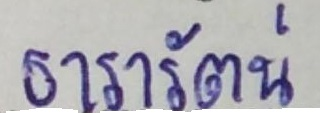 ธารารัตน์